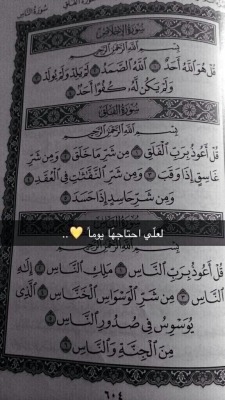 سُورَةُ الإِخْلَاصِ
بِسْمِ اللَّهِ الرَّحْمَٰنِ الرَّحِيمِ
قُلْ هُوَ اللَّهُ أَحَدٌ ١ اللَّهُ الصَّمَدُ ٢ لَمْ يَلِدْ وَلَمْ يُولَدْ ٣
وَلَمْ يَكُن لَّهُ كُفُوًا أَحَدٌ ٤
سُورَةُ الفَلَقِ
بِسْمِ اللَّهِ الرَّحْمَٰنِ الرَّحِيمِ
قُلْ أَعُوذُ بِرَبِّ الْفَلَقِ ١ مِن شَرِّ مَا خَلَقَ ٢ وَمِن شَرِّ
غَاسِقٍ إِذَا وَقَبَ ٣ وَمِن شَرِّ النَّفَّاثَاتِ فِي الْعُقَدِ ٤
وَمِن شَرِّ حَاسِدٍ إِذَا حَسَدَ ٥
لعلّي احتاجهَا يوماً 💛..
قُلْ أَعُوذُ بِرَبِّ النَّاسِ ١ مَلِكِ النَّاسِ ٢ إِلَٰهِ
النَّاسِ ٣ مِن شَرِّ الْوَسْوَاسِ الْخَنَّاسِ ٤ الَّذِي
يُوَسْوِسُ فِي صُدُورِ النَّاسِ ٥
مِنَ الْجِنَّةِ وَالنَّاسِ ٦
٦٠٤